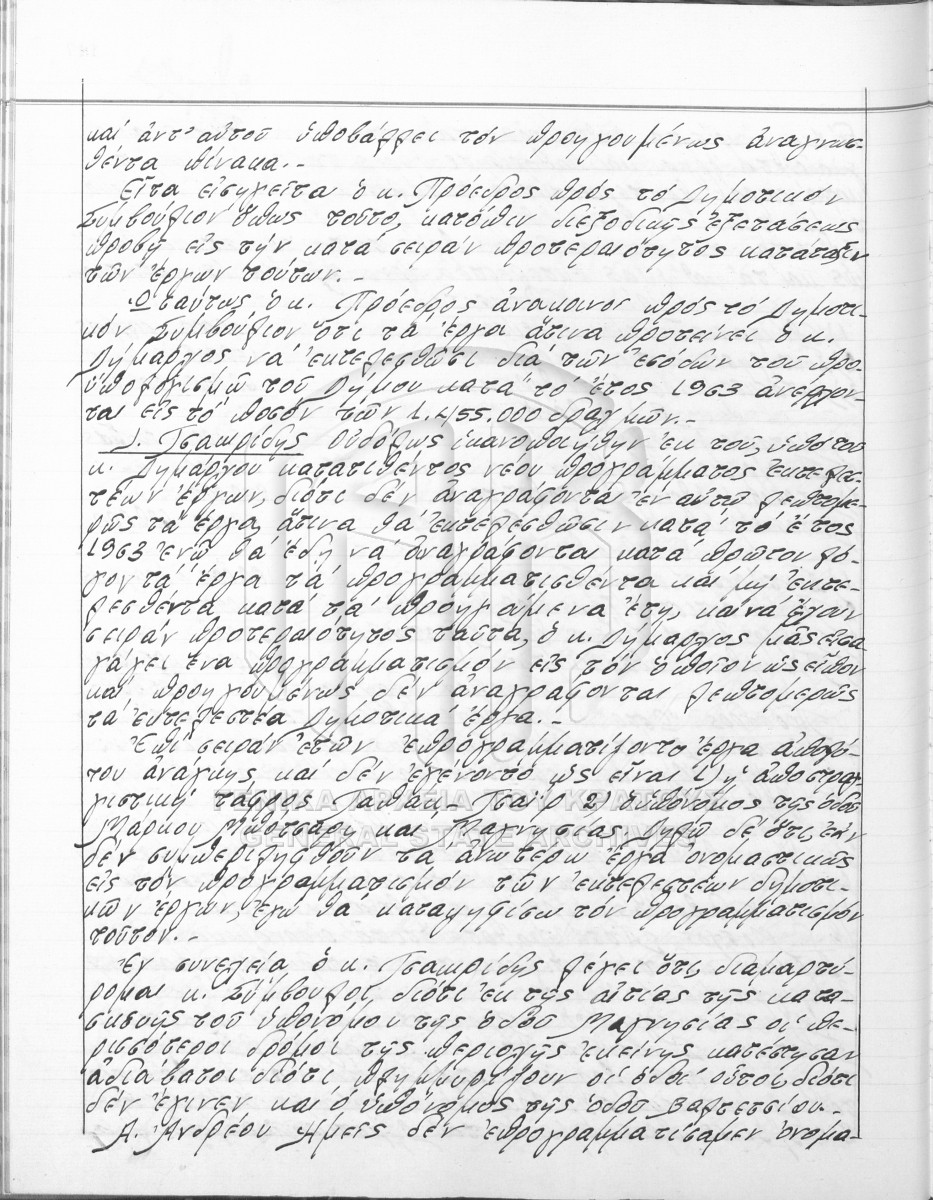 καί ἀντ' αὐτοῦ ὑποβάλλει τόν προηγουμένως ἀναγνωσ-
θέντα πίνακα.-
Εἶτα εἰσηγεῖται ὁ κ. Πρόεδρος πρός τό Δημοτικόν
Συμβούλιον ὅπως τοῦτο, κατόπιν διεξοδικῆς ἐξετάσεως
προβῇ εἰς τήν κατά σειράν προτεραιότητος κατάταξιν
τῶν ἔργων τούτων.-
Ὡσαύτως ὁ κ. Πρόεδρος ἀνακοινοῖ πρός τό Δημοτι-
κόν Συμβούλιον ὅτι τά ἔργα ἅτινα προτείνει ὁ κ.
Δήμαρχος νά ἐκτελεσθῶσι διά τῶν ἐσόδων τοῦ προ-
ϋπολογισμοῦ τοῦ Δήμου κατά τό ἔτος 1963 ἀνέρχον-
ται εἰς τό ποσόν τῶν 1.455.000 δραχμῶν.-
Ι. Τσαπρίδης Οὐδόλως ἱκανοποιήθην ἐκ τοῦ, ὑπό τοῦ
κ. Δημάρχου κατατιθέντος νέου προγράμματος ἐκτελε-
τέων ἔργων, διότι δέν ἀναγράφονται ἐν αὐτῷ λεπτομε-
ρῶς τά ἔργα, ἅτινα θά ἐκτελεσθῶσιν κατά τό ἔτος
1963 ἐνῶ θά ἔδει νά ἀναγράφονται κατά πρῶτον λό-
γον τά ἔργα τά προγραμματισθέντα καί μή ἐκτε-
λεσθέντα κατά τά προηγούμενα ἔτη, καί νά ἔχουν
σειράν προτεραιότητος ταῦτα, ὁ κ. Δήμαρχος μᾶς εἰσα-
γάγει ἕνα προγραμματισμόν εἰς τόν ὁποῖον ὡς εἶπον
καί προηγουμένως δέν ἀναγράφονται λεπτομερῶς
τά ἐκτελεστέα Δημοτικά ἔργα.-
Ἐπί σειράν ἐτῶν ἐπρογραμματίζοντο ἔργα ἀπολύ-
του ἀνάγκης καί δέν ἐγένοντο ὡς εἶναι 1) ἡ ἀποστραγ-
γιστική τάφρος 2) ὁ ὑπόνομος τῆς ὁδοῦ
Μάρκου Μπότσαρη καί Μαγνησίας. Δηλῶ δέ ὅτι, ἐάν
δέν συμπεριληφθοῦν τά ἀνωτέρω ἔργα ὀνομαστικῶς
εἰς τόν προγραμματισμόν τῶν ἐκτελεστέων δημοτι-
κῶν ἔργων, ἐγώ θά καταψηφίσω τόν προγραμματισμόν
τοῦτον.-
Ἐν συνεχείᾳ ὁ κ. Τσαπρίδης λέγει ὅτι, διαμαρτύ-
ρομαι κ. Σύμβουλοι, διότι ἐκ τῆς αἰτίας τῆς κατα-
σκευῆς τοῦ ὑπονόμου τῆς ὁδοῦ Μαγνησίας οἱ πε-
ρισσότεροι δρόμοι τῆς περιοχῆς ἐκείνης κατέστησαν
ἀδιάβατοι διότι, πλημμυρίζουν οἱ ὁδοί οὗτοι, διότι
δέν ἔγινεν καί ὁ ὑπόνομος τῆς ὁδοῦ Βαλτετσίου.-
Α. Ἀνδρέου Ἡμεῖς δέν ἐπρογραμματίσαμεν ὀνομα-
ΓΕΝΙΚΑ ΑΡΧΕΙΑ ΤΟΥ ΚΡΑΤΟΥΣ
GENERAL STATE ARCHIVES